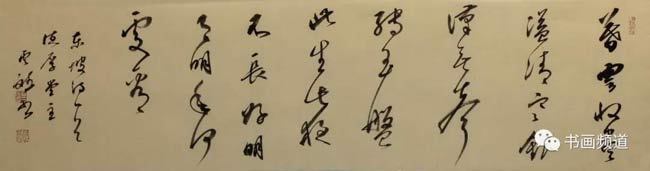 暮雲收盡
溢清寒銀
漢無聲
轉玉盤
此生此夜
不長好明
月明年何
處看
東坡詩一首
厚堂主
书画频道